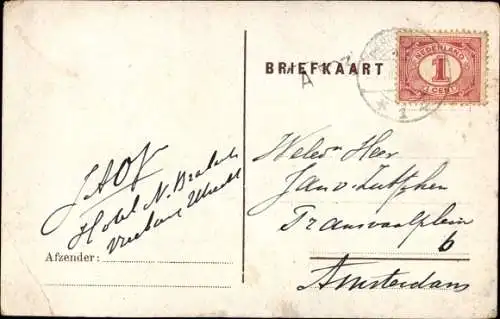 BRIEFKAART
NEDERLAND
1
CENT
1
Hotel N. Brabant
Vreeburg Utrecht
Afzender:
Weled Heer
Jan v. Zutphen
Transvaalplein
6
Amsterdam